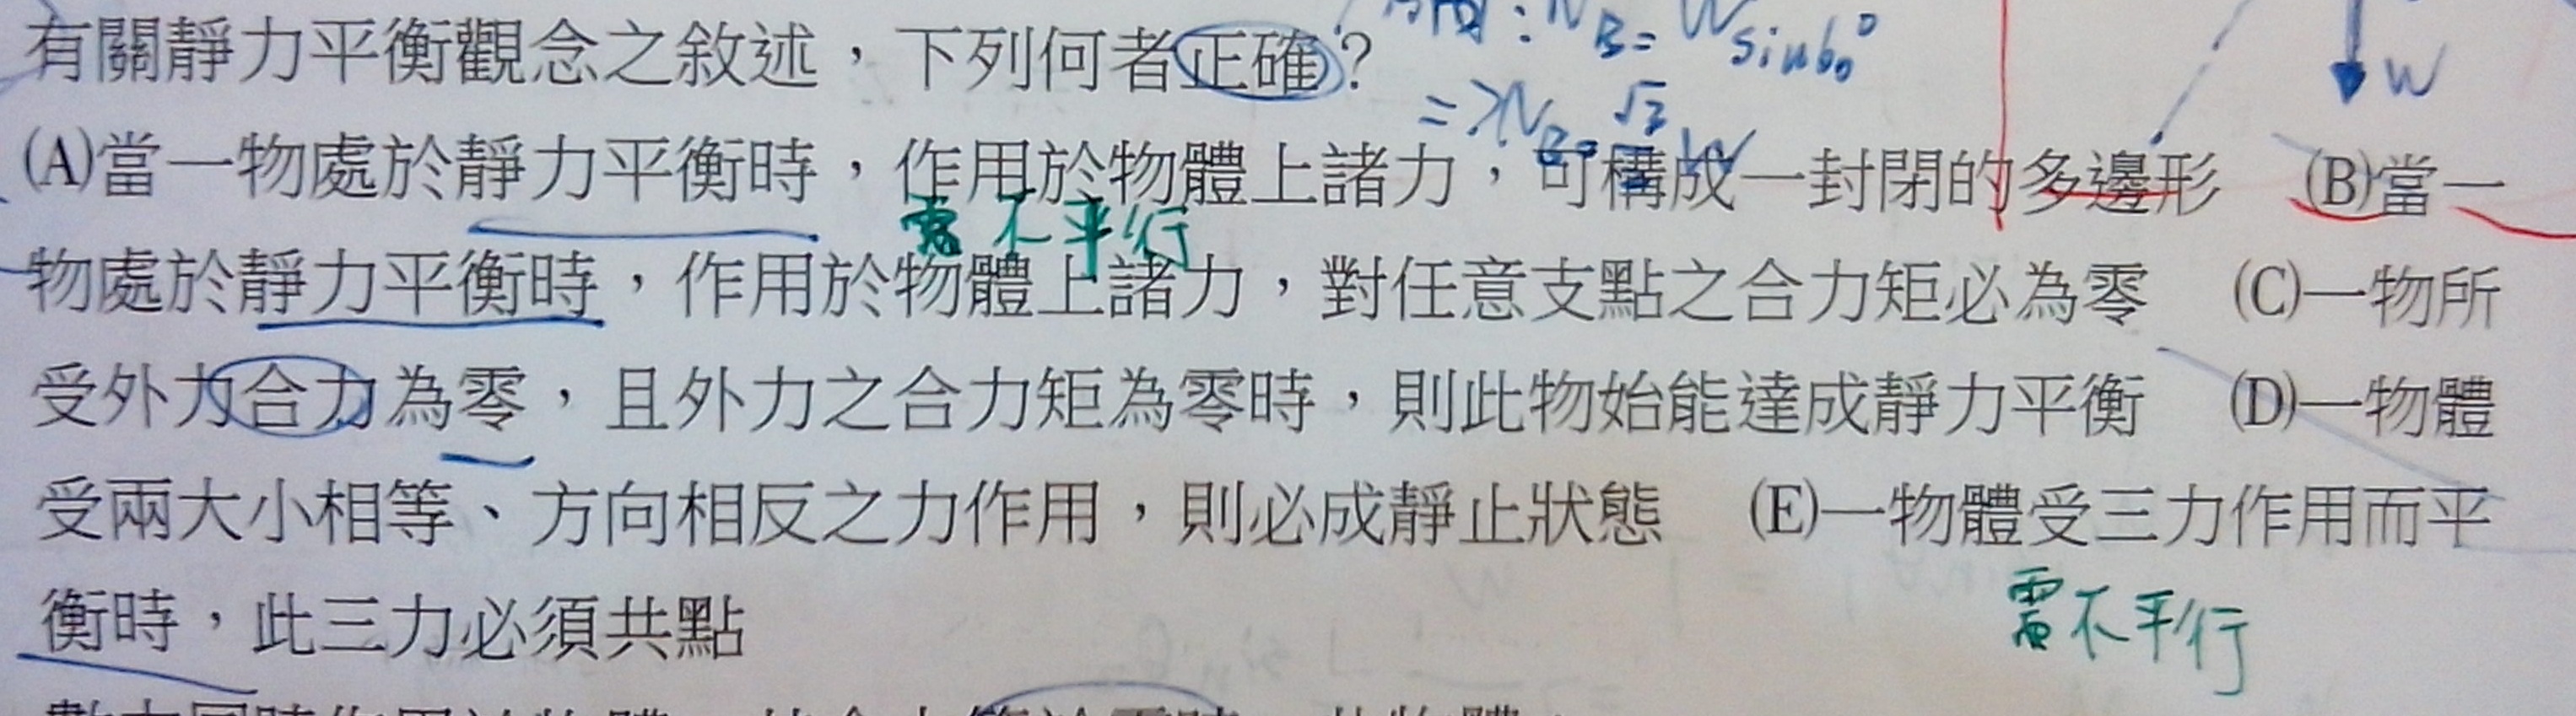 有關靜力平衡觀念之敘述，下列何者正確？
N_B = W sin60°
W
(A)當一物處於靜力平衡時，作用於物體上諸力，可構成一封閉的多邊形　(B)當一
需不平行
物處於靜力平衡時，作用於物體上諸力，對任意支點之合力矩必為零　(C)一物所
受外力合力為零，且外力之合力矩為零時，則此物始能達成靜力平衡　(D)一物體
受兩大小相等、方向相反之力作用，則必成靜止狀態　(E)一物體受三力作用而平
需不平行
衡時，此三力必須共點